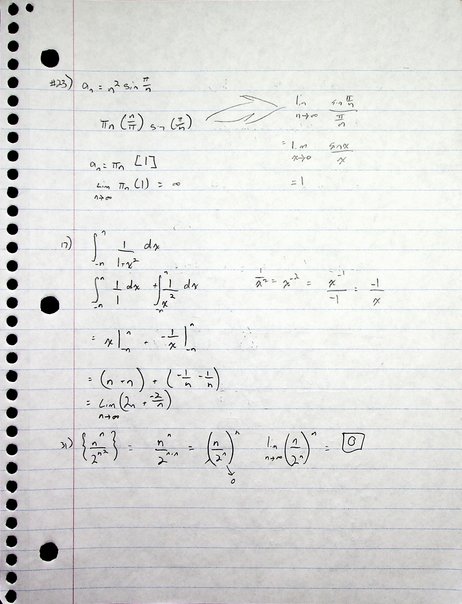 #23) aₙ = n² sin π/n
πn (n/π) sin (π/n)
lim n→∞ (sin π/n)/(π/n)
= lim x→0 (sin x)/x
= 1
aₙ = πn [1]
lim n→∞ πn (1) = ∞
17) ∫₋ₙⁿ 1/(1+x²) dx
∫₋ₙⁿ 1/1 dx + ∫₋ₙⁿ 1/x² dx
1/x² = x⁻² = x⁻¹/-1 = -1/x
= x |₋ₙⁿ + -1/x |₋ₙⁿ
= (n + n) + (-1/n - 1/n)
= lim n→∞ (2n + -2/n)
31) {nⁿ/2^(n²)} = nⁿ/2^(n·n) = (n/2ⁿ)ⁿ lim n→∞ (n/2ⁿ)ⁿ = 0
0